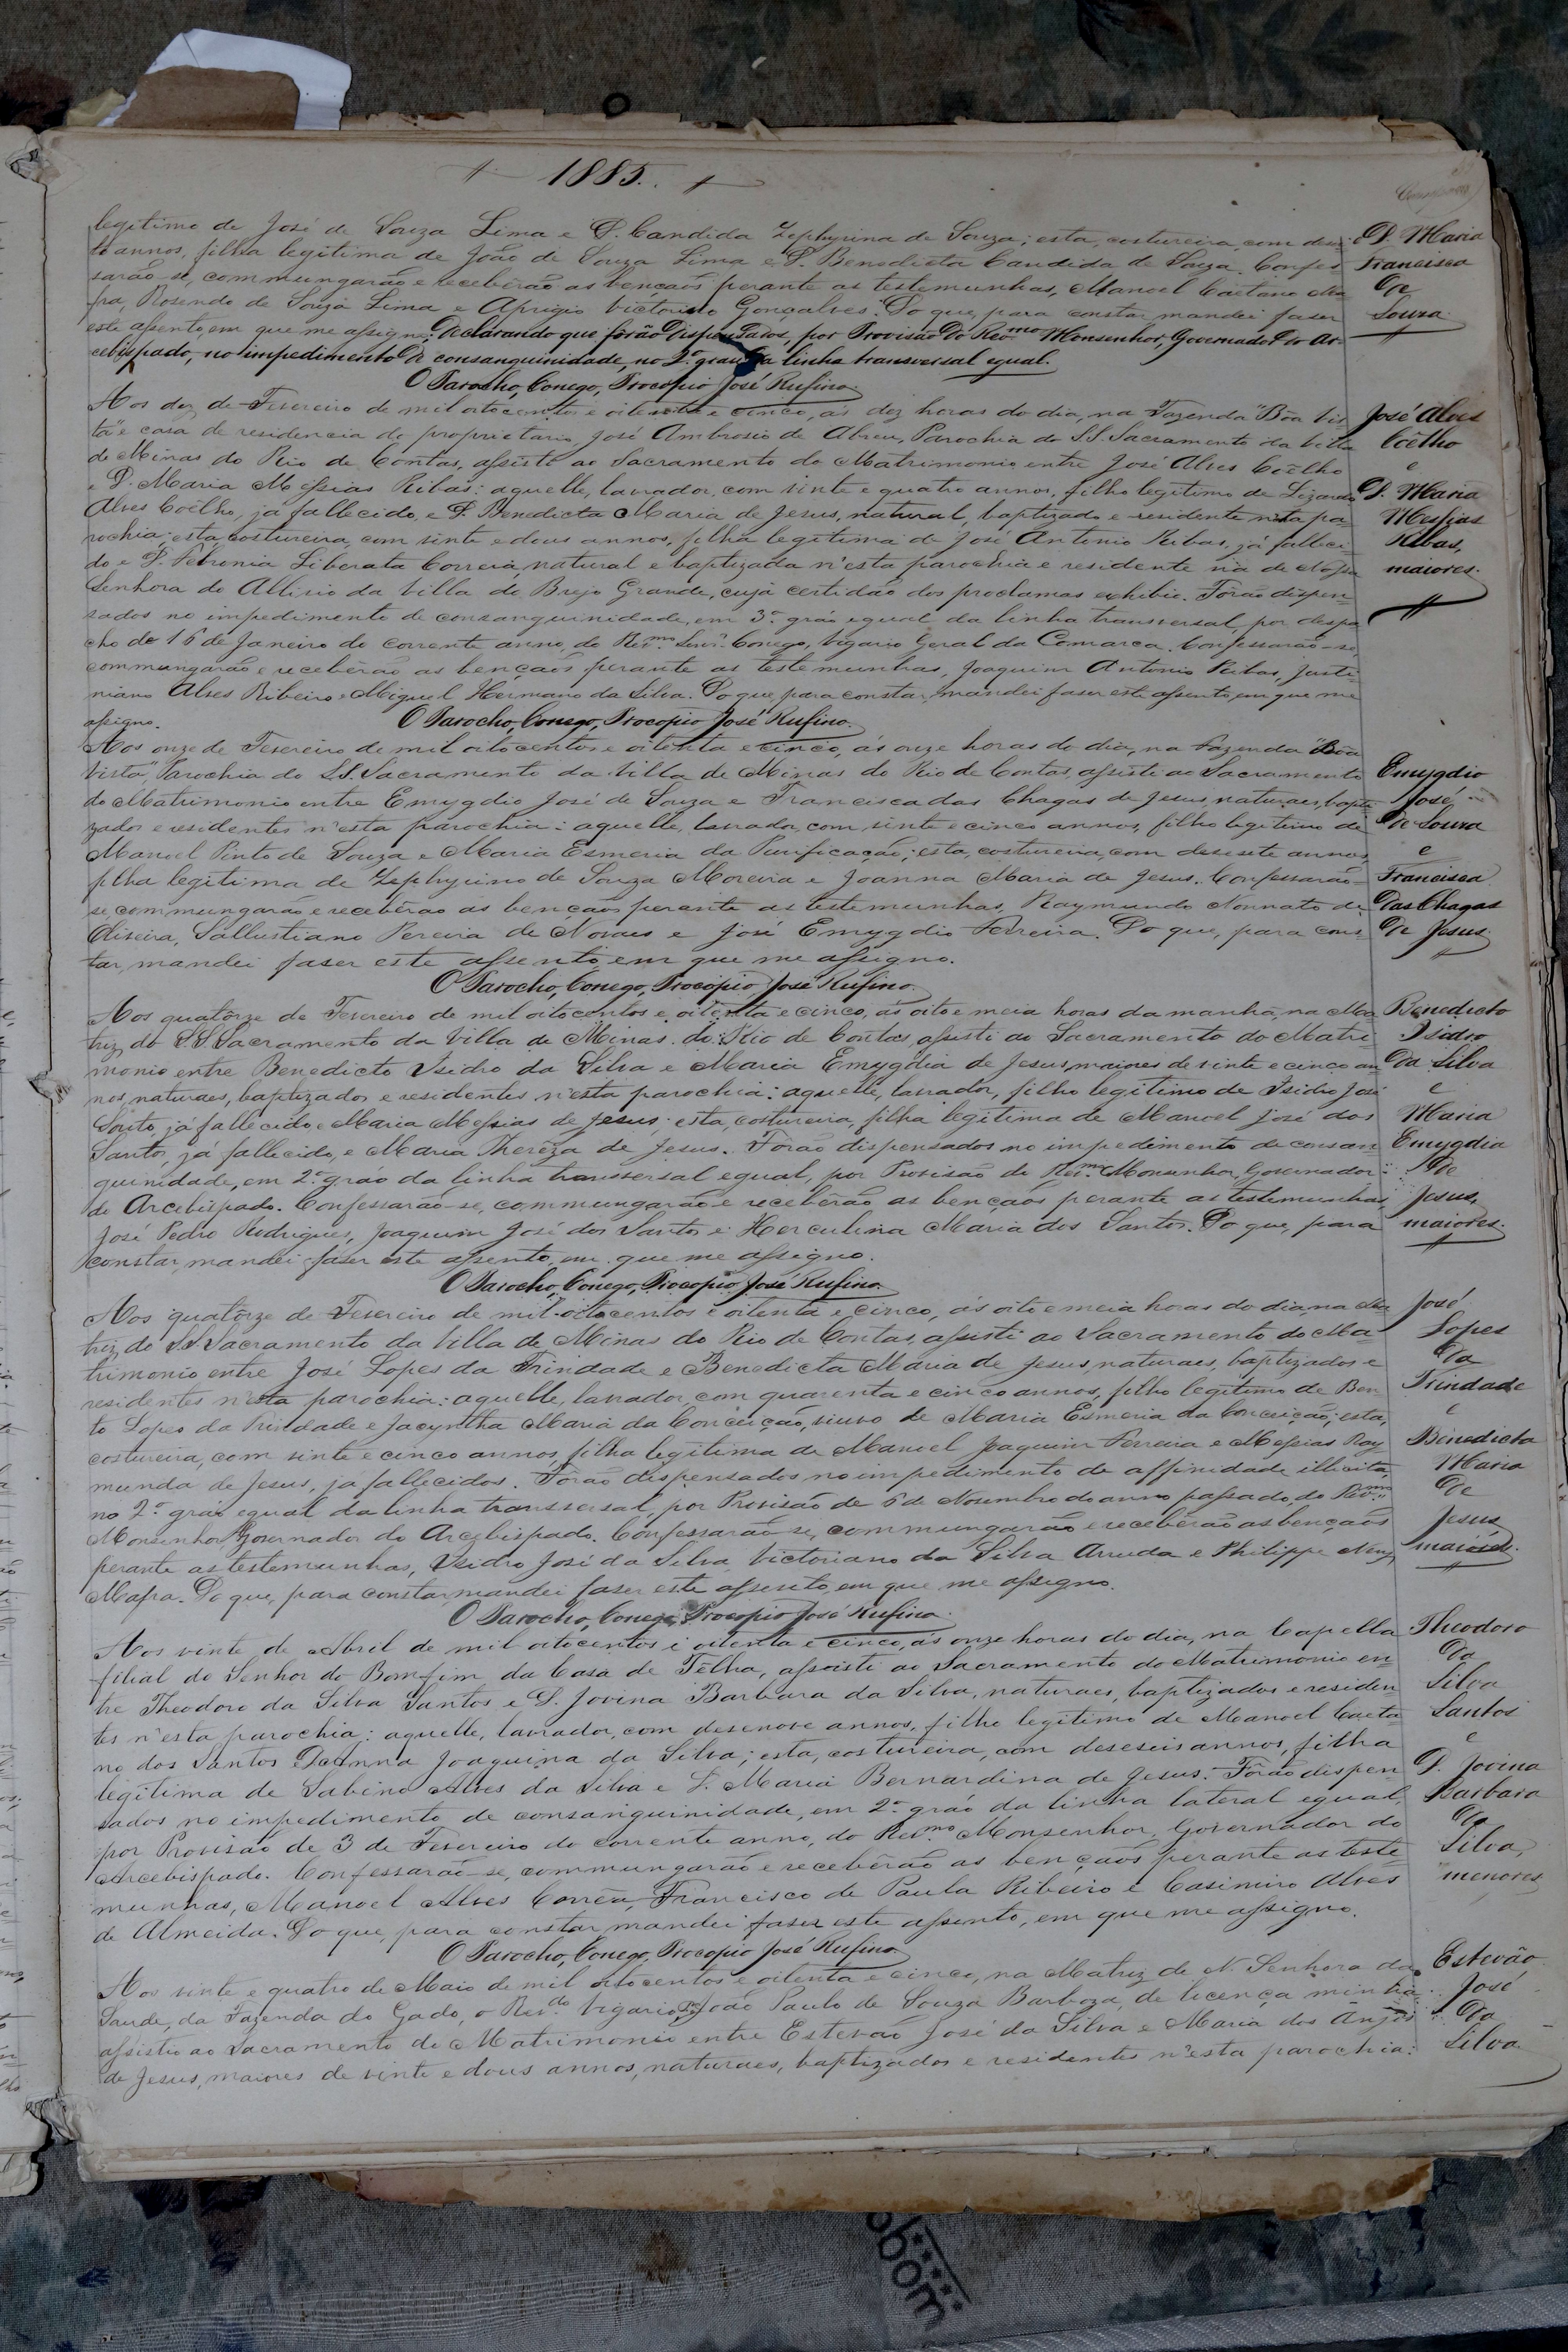 1885.
legitimo de José de Souza Lima e D. Candida Zephyrina de Souza; esta, costureira, com desoi
to annos, filha legitima de João de Souza Lima e D. Benedicta Candida de Souza. Confes
sarão-se, commungarão e receberão as bençaõs perante as testemunhas, Manoel Caetano Ma
fra, Rosendo de Souza Lima e Aprigio Victorino Gonçalves. Do que, para constar, mandei faser
este assento, em que me assigno; Declarando que forão Dispensados, por Provisão do Revmo Monsenhor, Governador do Ar-
cebispado, no impedimento de consanguinidade, no 2º grau da linha transversal egual.
O Parocho, Conego, Procopio José Rufino.
D. Maria
Francisca
de
Souza
Aos dez de Fevereiro de mil oitocentos e oitenta e cinco, ás dez horas do dia, na Fazenda "Bôa Vis
ta" e casa de residencia do proprietario, José Ambrosio de Abreu, Parochia do S.S. Sacramento da Villa
de Minas do Rio de Contas, assisti ao Sacramento do Matrimonio entre José Alves Coêlho
e D. Maria Messias Ribas: aquelle, lavrador, com vinte e quatro annos, filho legitimo de Lizardo
Alves Coêlho, já fallecido, e D. Benedicta Maria de Jesus, natural, baptizado e residente nesta pa
rochia; esta, costureira, com vinte e dous annos, filha legitima de José Antonio Ribas, já falleci-
do e D. Petronia Liberata Correia, natural e baptizada n'esta parochia e residente na de Nossa
Senhora do Allivio da Villa do Brejo Grande, cuja certidão dos proclamas exhibio. Forão dispen-
sados no impedimento de consanguinidade, em 3º gráo egual da linha transversal por despa
cho de 16 de Janeiro do corrente anno, do Revmo Senr. Conego, Vigario Geral da Comarca. Confessarão-se
commungarão e receberão as bençaõs perante as testemunhas, Joaquim Antonio Ribas, Justi
niano Alves Ribeiro e Miguel Hermano da Silva. Do que, para constar, mandei faser este assento, em que me
assigno.
O Parocho, Conego, Procopio José Rufino.
José Alves
Coêlho
e
D. Maria
Messias
Ribas,
maiores.
Aos onze de Fevereiro de mil oitocentos e oitenta e cinco, ás onze horas do dia, na Fazenda "Bôa
Vista", Parochia do S.S. Sacramento da Villa de Minas do Rio de Contas, assisti ao Sacramento
do Matrimonio entre Emygdio José de Souza e Francisca das Chagas de Jesus, naturaes, bapti
zados e residentes n'esta parochia: aquelle, lavrador, com vinte e cinco annos, filho legitimo de
Manoel Pinto de Souza e Maria Esmeria da Purificação; esta, costureira, com desesete annos,
filha legitima de Zephyrino de Souza Moreira e Joanna Maria de Jesus. Confessarão-
se, commungarão e receberão as bençaõs perante as testemunhas, Raymundo Nonnato de
Oliveira, Sallustiano Pereira de Novaes e José Emygdio Ferreira. Do que, para cons-
tar, mandei faser este assento, em que me assigno.
O Parocho, Conego, Procopio José Rufino.
Emygdio
José
de Souza
e
Francisca
das Chagas
de Jesus.
Aos quatôrze de Fevereiro de mil oitocentos e oitenta e cinco, ás oito e meia horas da manhã, na Ma
triz do S.S. Sacramento da Villa de Minas do Rio de Contas, assisti ao Sacramento do Matri-
monio entre Benedicto Isidro da Silva e Maria Emygdia de Jesus, maiores de vinte e cinco an
nos, naturaes, baptizados e residentes n'esta parochia: aquelle, lavrador, filho legitimo de Isidro José
Souto, já fallecido e Maria Messias de Jesus; esta, costureira, filha legitima de Manoel José dos
Santos, já fallecido, e Maria Therêza de Jesus. Forão dispensados no impedimento de consan
guinidade, em 2º gráo da linha transversal egual, por Provisão do Revmo Monsenhor, Governador
do Arcebispado. Confessarão-se, commungarão e receberão as bençaõs perante as testemunhas,
José Pedro Rodrigues, Joaquim José dos Santos e Herculina Maria dos Santos. Do que, para
constar, mandei faser este assento, em que me assigno.
O Parocho, Conego, Procopio José Rufino.
Benedicto
Isidro
da Silva
e
Maria
Emygdia
de
Jesus,
maiores.
Aos quatôrze de Fevereiro de mil oitocentos e oitenta e cinco, ás oito e meia horas do dia na Ma
triz do S.S. Sacramento da Villa de Minas do Rio de Contas, assisti ao Sacramento do Ma-
trimonio entre José Lopes da Trindade e Benedicta Maria de Jesus, naturaes, baptizados e
residentes n'esta parochia: aquelle, lavrador, com quarenta e cinco annos, filho legitimo de Ben
to Lopes da Trindade e Jacyntha Maria da Conceição, viuvo de Maria Esmeria da Conceição; esta,
costureira, com vinte e cinco annos, filha legitima de Manoel Joaquim Ferreira e Messias Ray
munda de Jesus, já fallecidos. Forão dispensados no impedimento de affinidade illicita,
no 2º gráo egual da linha transversal, por Provisão de 6 de Novembro do anno passado, do Revmo
Monsenhor, Governador do Arcebispado. Confessarão-se, commungarão e receberão as bençaõs
perante as testemunhas, Isidro José da Silva, Victoriano da Silva Arruda e Philippe Nery
Mafra. Do que, para constar, mandei faser este assento, em que me assigno.
O Parocho, Conego, Procopio José Rufino.
José
Lopes
da
Trindade
e
Benedicta
Maria
de
Jesus
maiores.
Aos vinte de Abril de mil oitocentos e oitenta e cinco, ás onze horas do dia, na Capella
filial do Senhor do Bomfim da Casa de Têlha, assisti ao Sacramento do Matrimonio en-
tre Theodoro da Silva Santos e D. Jovina Barbara da Silva, naturaes, baptizados e residen-
tes n'esta parochia: aquelle, lavrador, com desenove annos, filho legitimo de Manoel Caeta-
no dos Santos e Joanna Joaquina da Silva; esta, costureira, com deseseis annos, filha
legitima de Sabino Alves da Silva e D. Maria Bernardina de Jesus. Forão dispen-
sados no impedimento de consanguinidade, em 2º gráo da linha lateral egual,
por Provisão de 3 de Fevereiro do corrente anno, do Revmo Monsenhor, Governador do
Arcebispado. Confessarão-se, commungarão e receberão as bençaõs perante as teste-
munhas, Manoel Alves Corrêa, Francisco de Paula Ribeiro e Casimiro Alves
de Almeida. Do que, para constar, mandei faser este assento, em que me assigno.
O Parocho, Conego, Procopio José Rufino
Theodoro
da
Silva
Santos
e
D. Jovina
Barbara
da
Silva,
menores
Aos vinte e quatro de Maio de mil oitocentos e oitenta e cinco, na Matriz de N. Senhora da
Saude, da Fazenda do Gado, o Revdo Vigario, João Paulo de Souza Barboza, de licença minha
assistio ao Sacramento do Matrimonio entre Estevão José da Silva e Maria dos Anjos
de Jesus, maiores de vinte e dous annos, naturaes, baptizados e residentes n'esta parochia:
Estevão
José
da
Silva